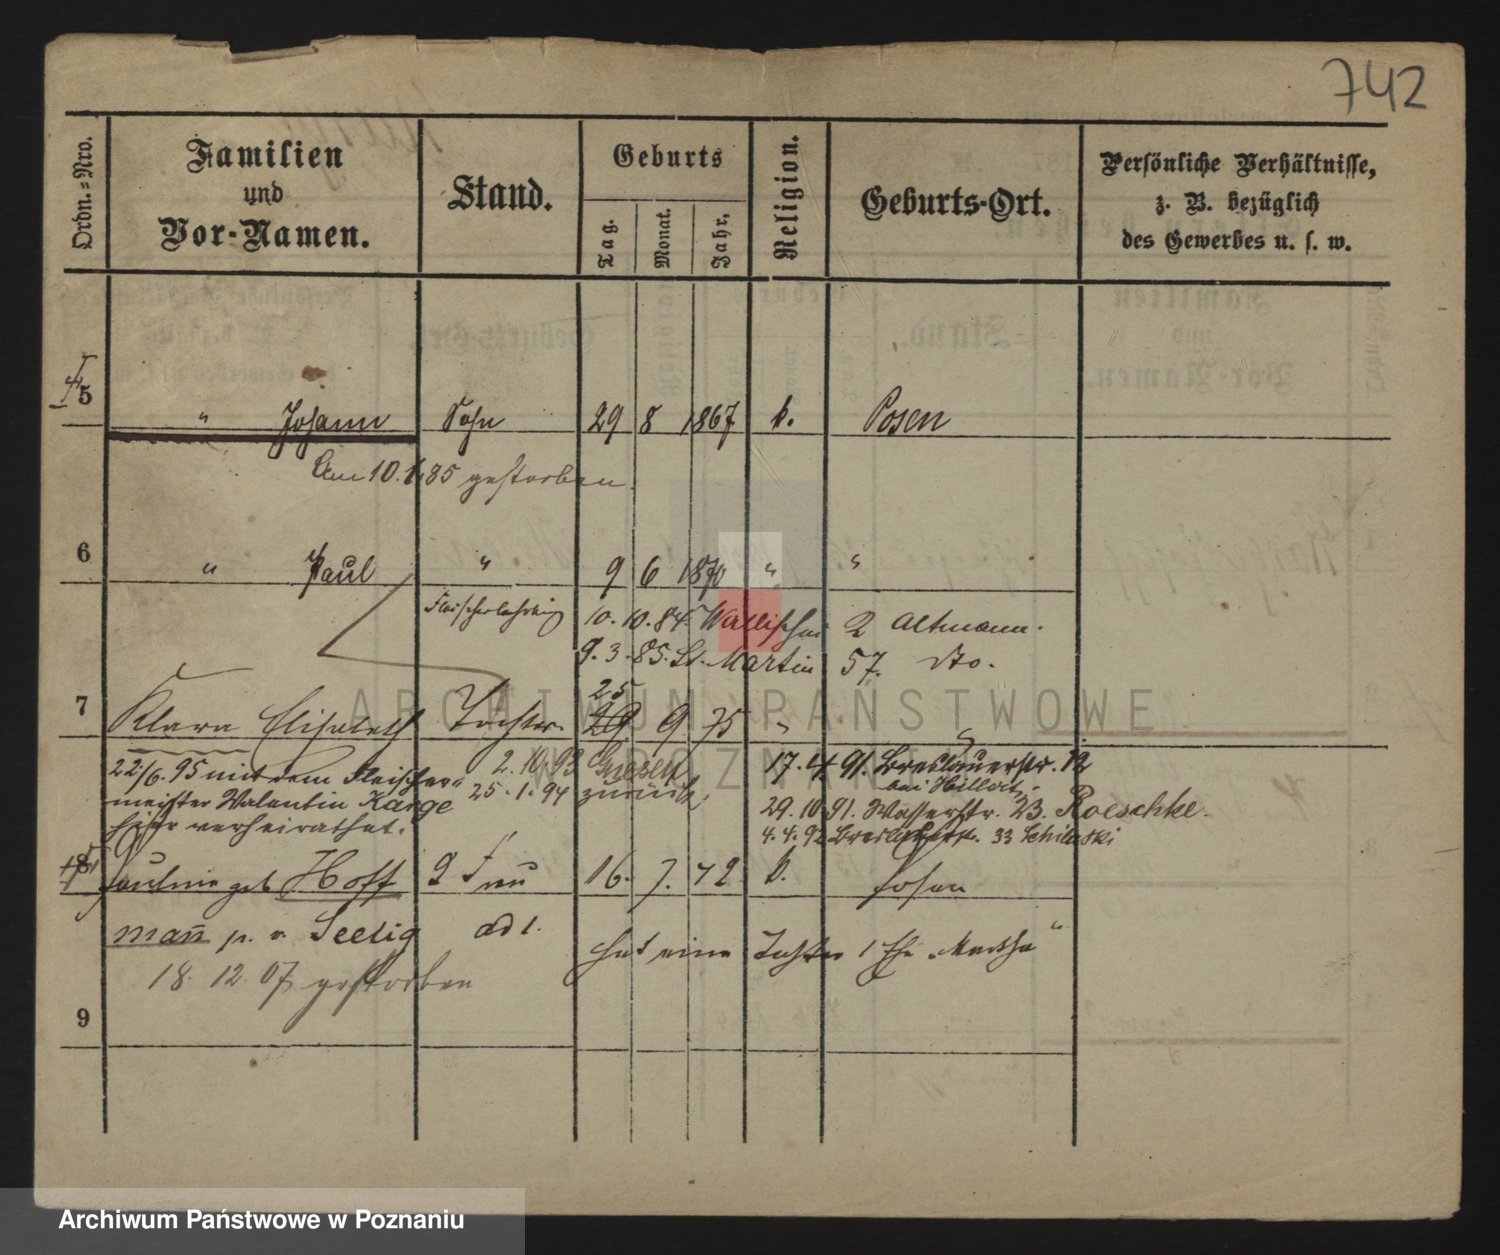 742
Ordn.=Nro.
Familien
und
Vor-Namen.
Stand.
Geburts
Tag.
Monat.
Jahr.
Religion.
Geburts-Ort.
Persönliche Verhältnisse,
z. B. bezüglich
des Gewerbes u. s. w.
5
" Johann Sohn 29 8 1867 k. Posen
Am 10. 1. 85 gestorben.
6
" Paul " 9 6 1870 " "
Fleischerlehrling 10. 10. 84. Wallischei 2 Altmann.
9. 3. 85. St. Martin 57. dto.
25
7
Klara Elisabeth Tochter 29 9. 75 "
22/6. 95 mit dem Fleischer=
meister Valentin Karge
hier verheirathet.
2. 10. 93 Gnesen
25. 1. 94 zurück.
17. 4. 91. Breslauerstr. 12
bei
29. 10. 91. Wasserstr. 23. Roeschke.
4. 4. 92 Breslauerstr. 33
8
Pauline geb Hoff 2 Frau 16. 7. 42 k. Posen
mañ p. v. Seelig ad 1.
hat eine Tochter 1 Ehe "Martha"
18. 12. 07 gestorben
9
ARCHIWUM PAŃSTWOWE
W POZNANIU
Archiwum Państwowe w Poznaniu